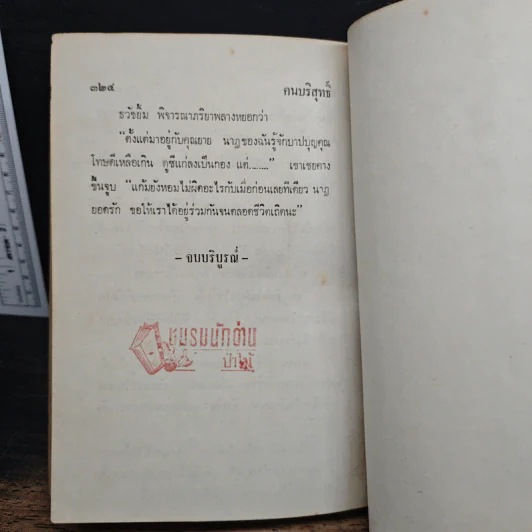 ๓๒๔ คนบริสุทธิ์
ธวัชยิ้ม พิจารณาภริยาพลางหยอกว่า
“ตั้งแต่มาอยู่กับคุณยาย นาฏของฉันรู้จักบาปบุญคุณ
โทษดีเหลือเกิน ดูซีแก่ลงเป็นกอง แต่........” เขาเชยคาง
ขึ้นจูบ “แก้มยังหอมไม่ผิดอะไรกับเมื่อก่อนเลยทีเดียว นาฏ
ยอดรัก ขอให้เราได้อยู่ร่วมกันจนตลอดชีวิตเถิดนะ”
– จบบริบูรณ์ –
ชมรมนักอ่าน
ป่าไม้